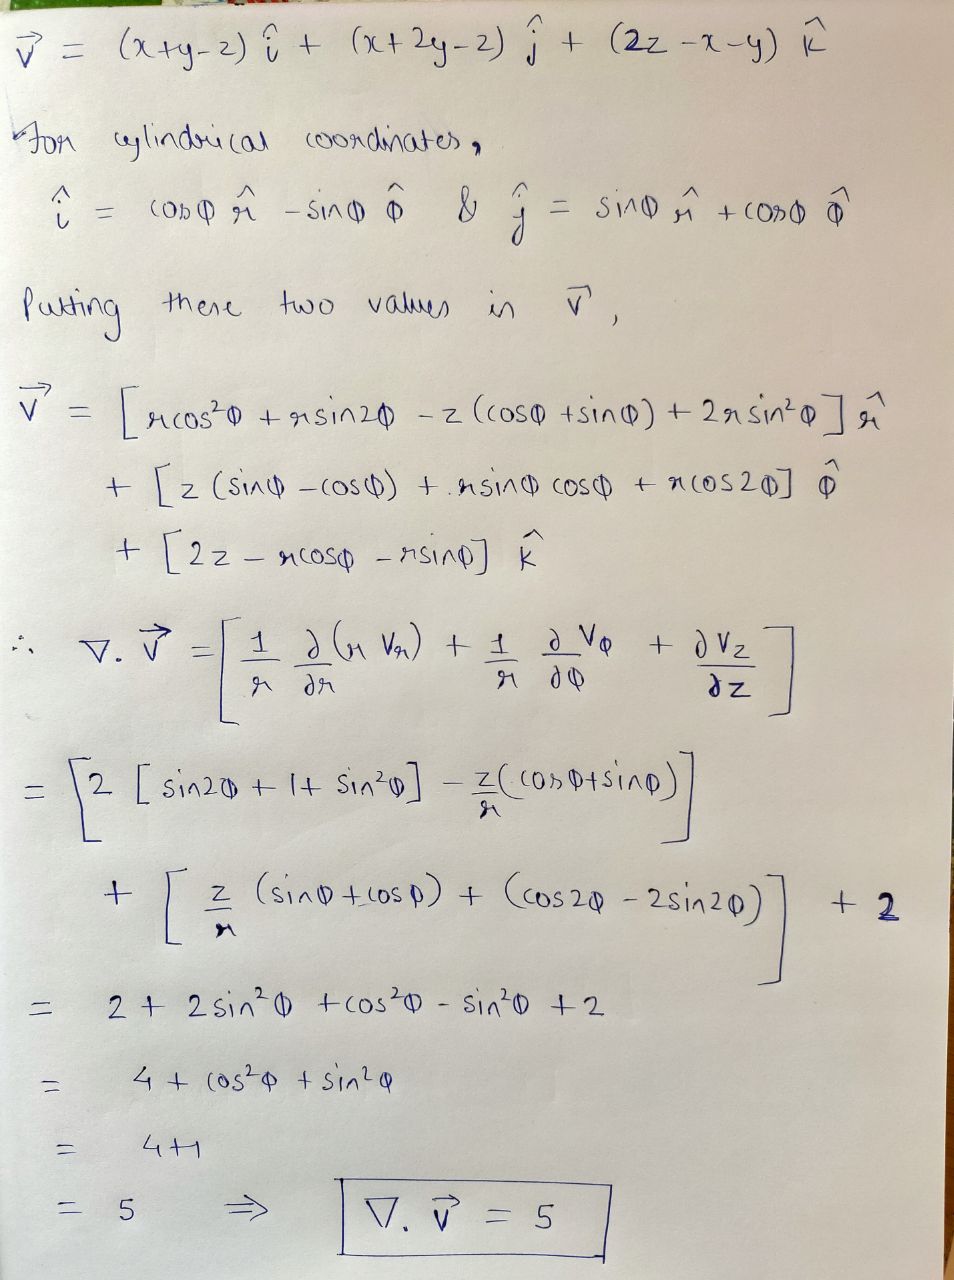 v⃗ = (x+y-z) î + (x+2y-z) ĵ + (2z-x-y) k̂
For cylindrical coordinates,
î = cosφ r̂ - sinφ φ̂ & ĵ = sinφ r̂ + cosφ φ̂
Putting these two values in v⃗,
v⃗ = [rcos²φ + rsin2φ - z(cosφ + sinφ) + 2rsin²φ] r̂
+ [z(sinφ - cosφ) + rsinφ cosφ + rcos2φ] φ̂
+ [2z - rcosφ - rsinφ] k̂
∴ ∇. v⃗ = [1/r ∂/∂r (r Vr) + 1/r ∂Vφ/∂φ + ∂Vz/∂z]
= [2 [sin2φ + 1 + sin²φ] - z/r (cosφ + sinφ)]
+ [z/r (sinφ + cosφ) + (cos2φ - 2sin2φ)] + 2
= 2 + 2sin²φ + cos²φ - sin²φ + 2
= 4 + cos²φ + sin²φ
= 4+1
= 5 ⇒ ∇. v⃗ = 5